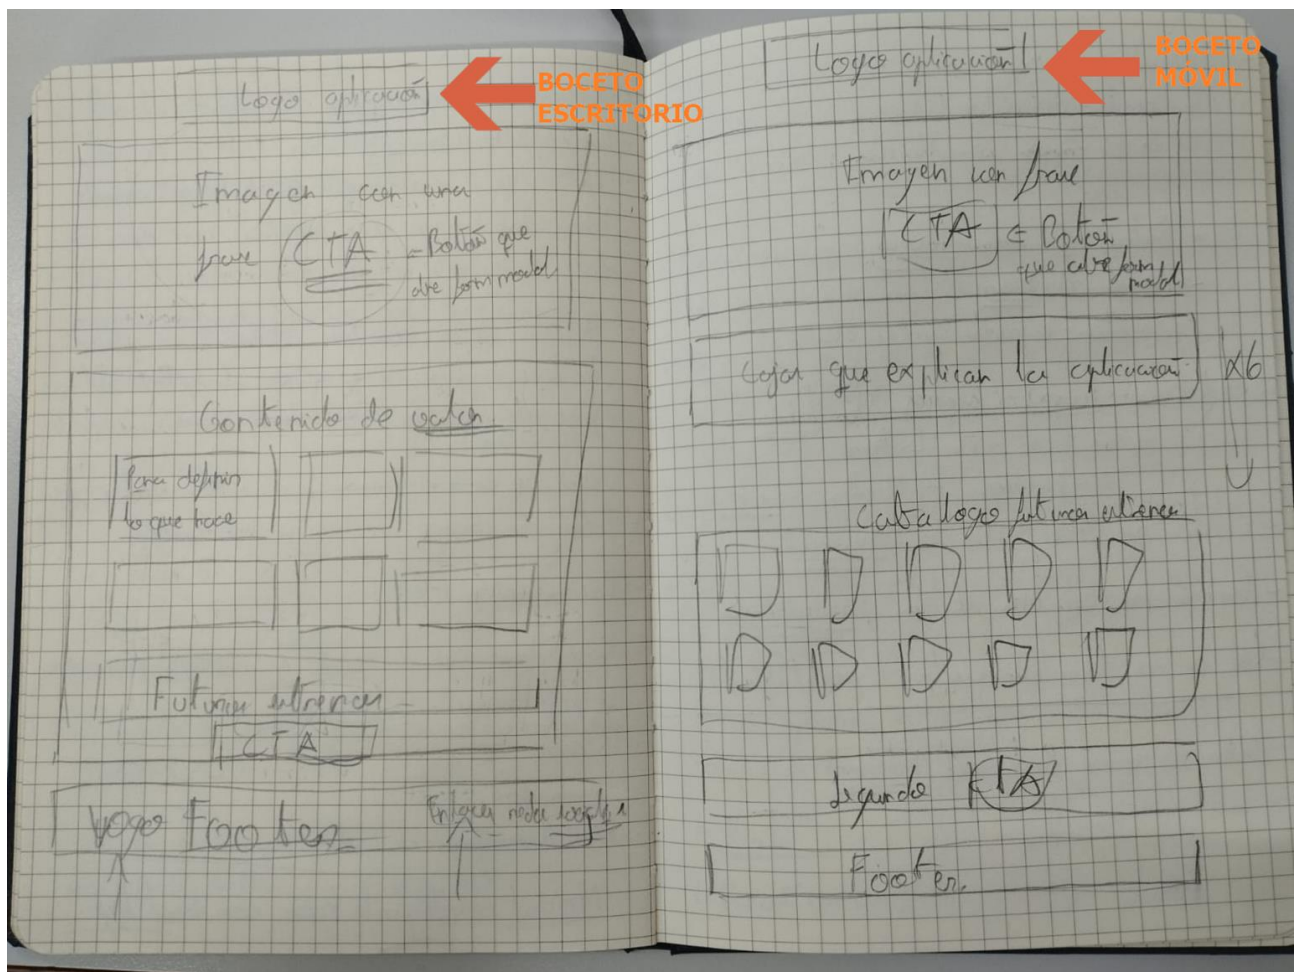 Logo aplicación
BOCETO
ESCRITORIO
Imagen con una
frase CTA = Botón que
abre form modal
Contenido de valor
Para definir
lo que hace
Futuros estrenos
CTA
Logo Footer
Enlaces redes sociales
Logo aplicación
BOCETO
MÓVIL
Imagen con frase
CTA ← Botón
que abre form
modal
Cajas que explican la aplicación x6
Catalogo futuros estrenos
Segundo CTA
Footer.